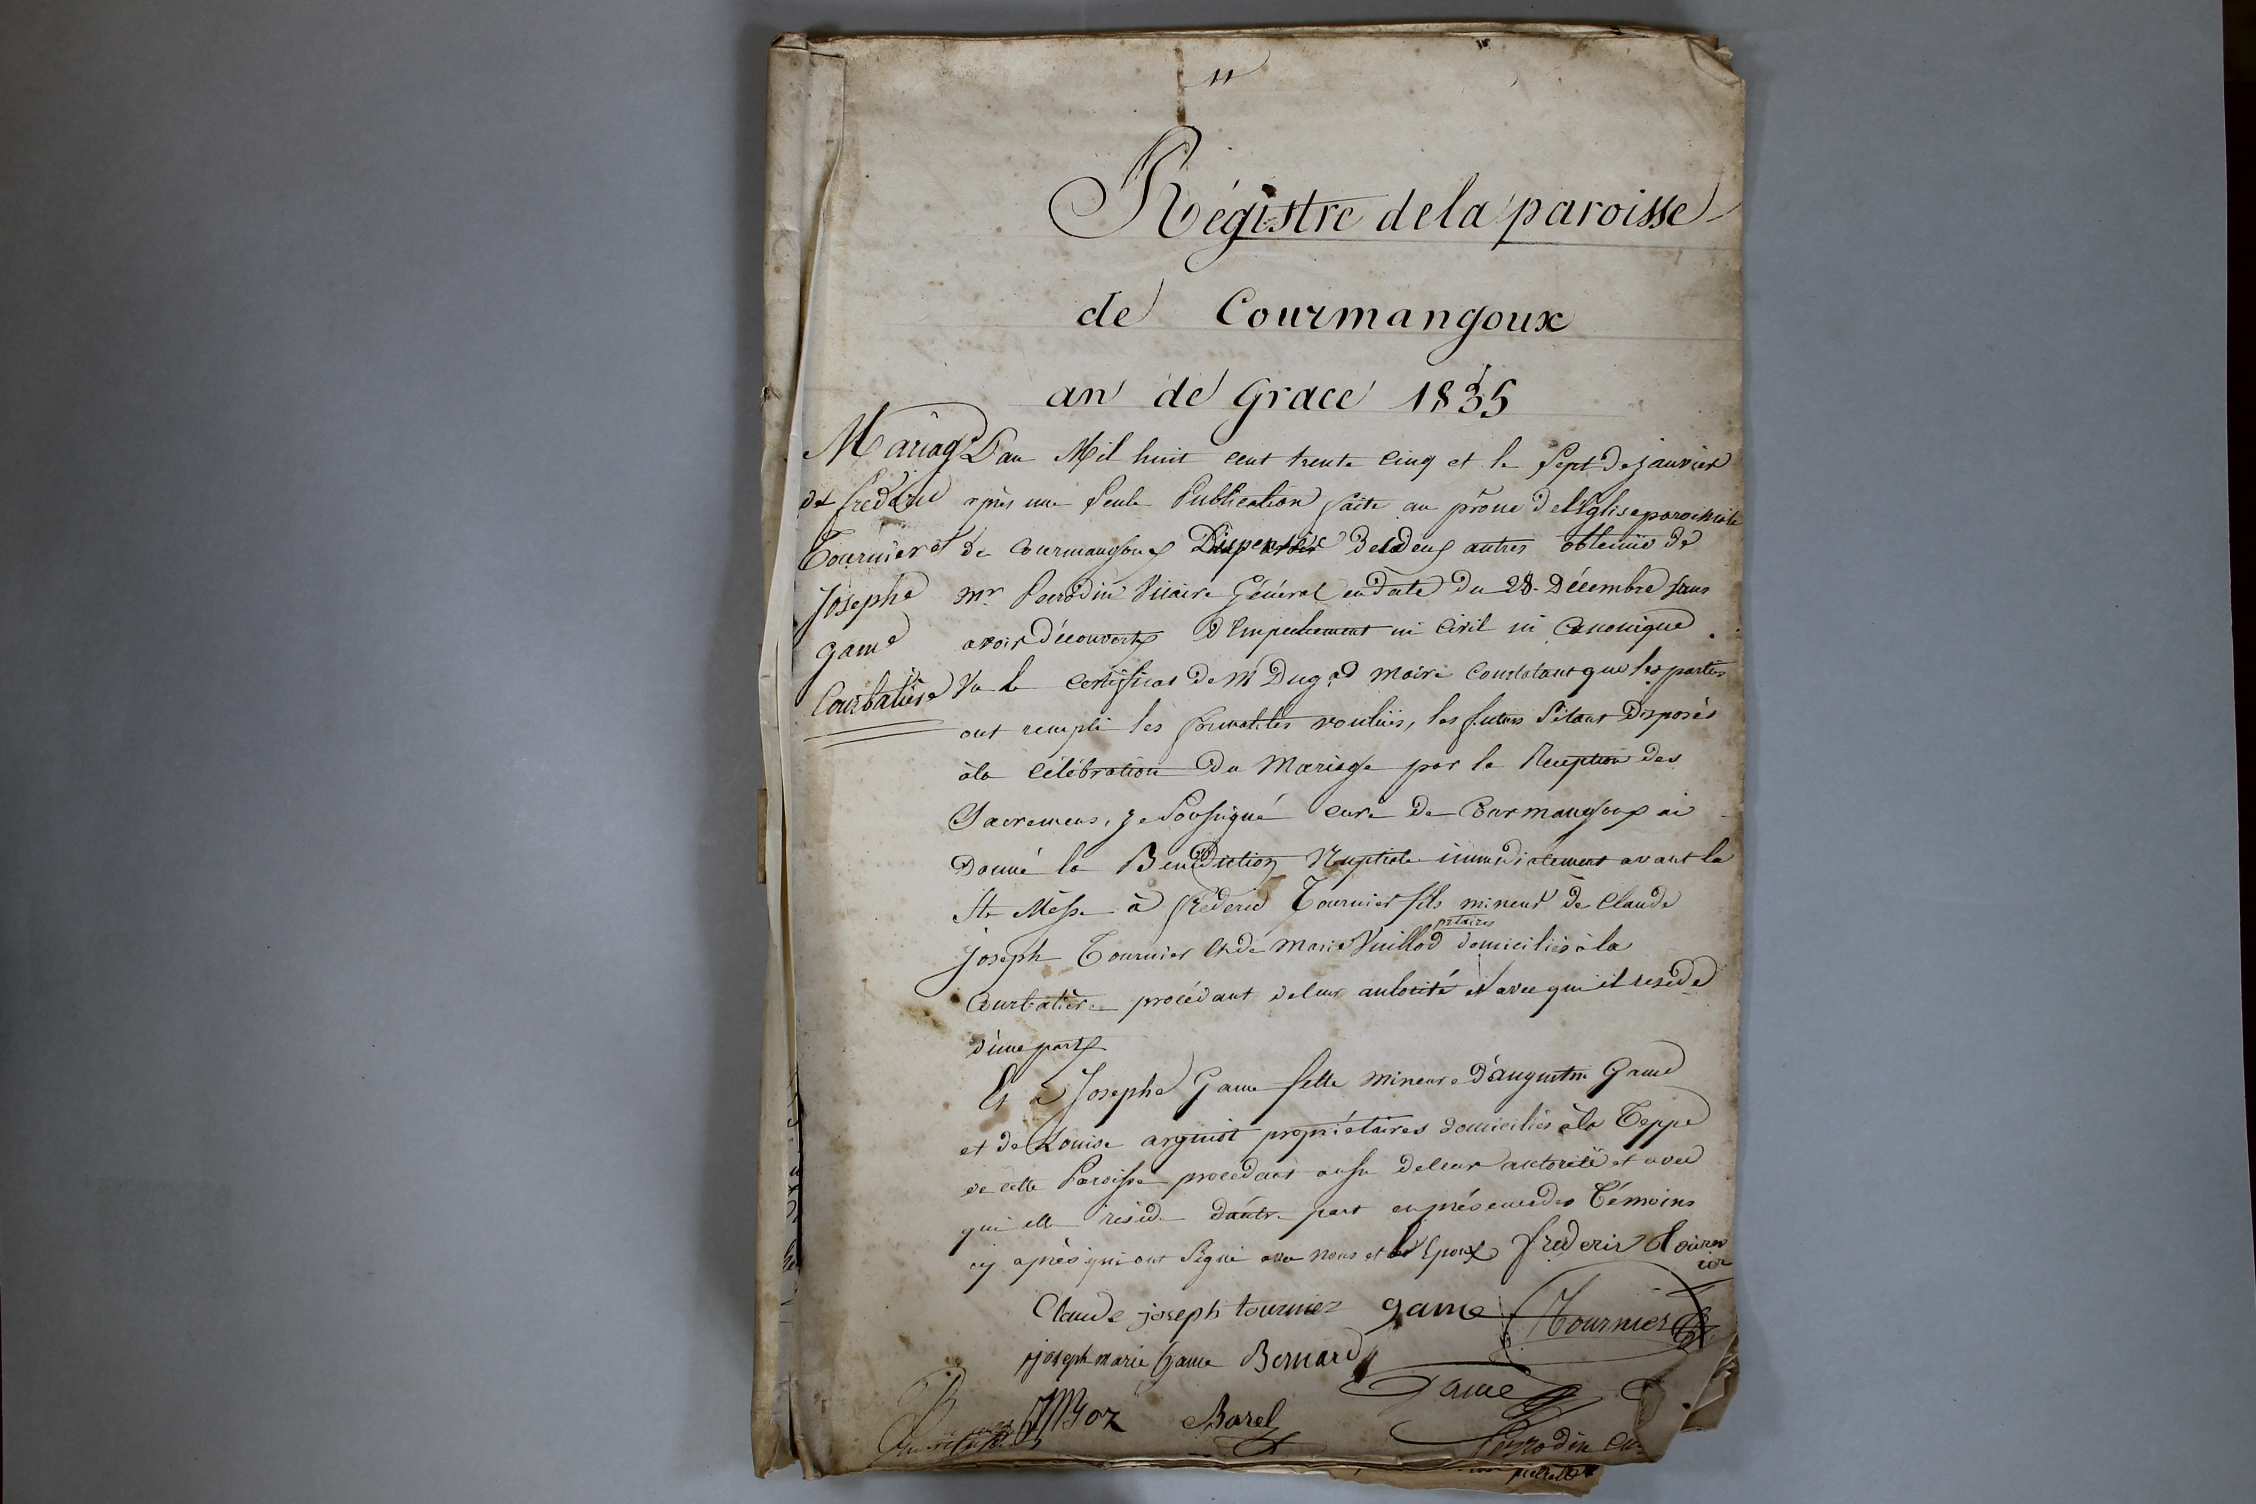 Régistre de la paroisse
de Courmangoux
an de Grace 1835
Mariage
de frederic
Tournier et
Josephe
game
Courbatière
L'an Mil huit cent trente cinq et le sept de janvier
après une seule Publication faite au prône de l'Eglise paroissiale
de Courmangoux Dispense des deux autres obtenüe de
mr Perrodin Vicaire Général en date du 28 Décembre sans
avoir découvert d'Empechement ni Civil ni Canonique
Vu le certificat de Mr Dugad maire constatant que les parties
ont rempli les formalités voulües, les futurs s'étant Disposés
à la Célébration du Mariage par la Reception des
Sacremens, je soussigné curé de Courmangoux ai
Donné la Benediction Nuptiale immédiatement avant la
Ste Messe à frederic Tournier fils mineur de Claude
joseph Tournier et de marie Vuillod domiciliés à la
Courbatière procédant de leur autorité et avec qui il reside
d'une part
Et à Josephe Game fille mineure d'augustin Game
et de Louise arguist propriétaires domiciliés à la Teppe
de cette Paroisse procedant aussi de leur autorité et avec
qui elle reside d'autre part en présence des Témoins
cy après qui ont signé avec nous et l'Epoux frederic Tournier
Claude joseph tournier game Tournier
joseph marie Game Bernard
Game
JMGoz Borel
Perrodin